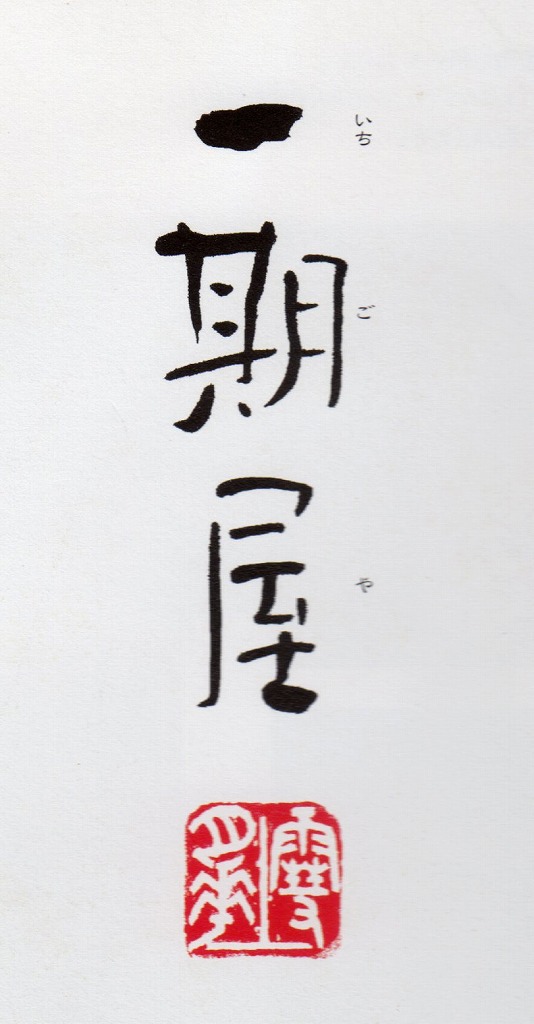 一期屋
いちごや